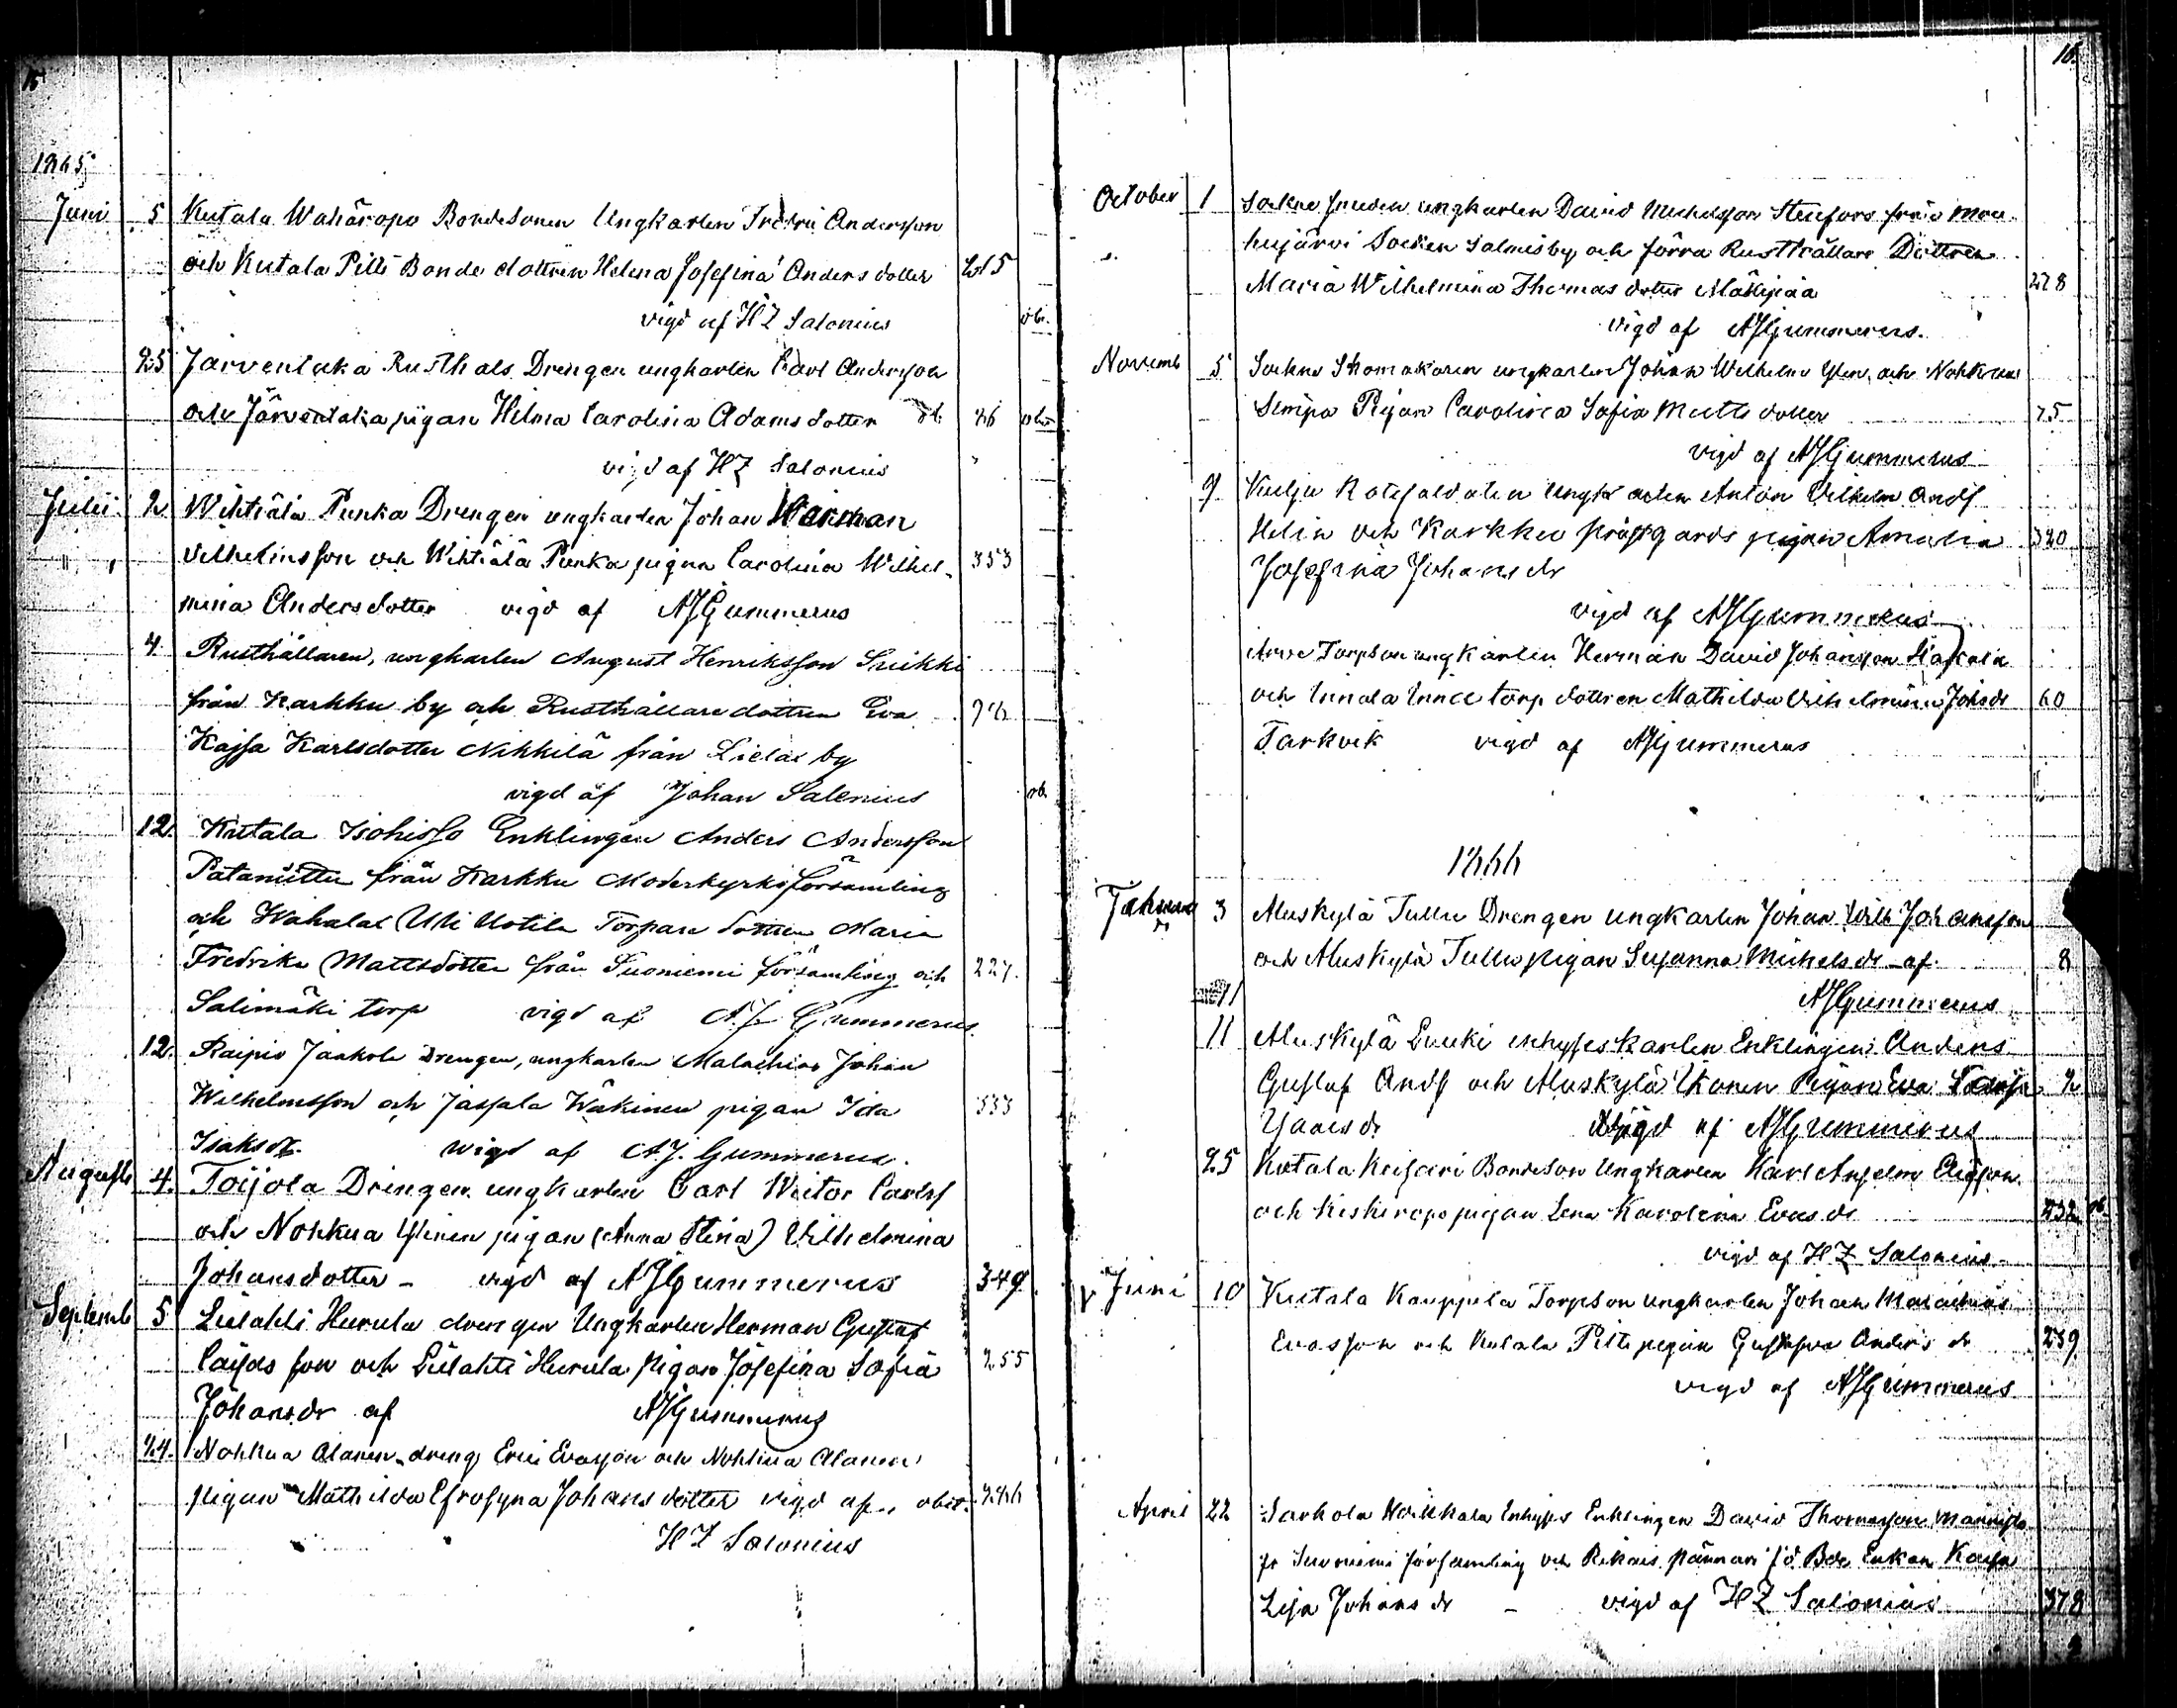 15
1865
Juni 5 Kutala Wahäropo Bondesonen Ungkarlen Fredric Andersson
och Kutala Pitti Bonde dottren Helena Josefina Anders dotter
vigd af HZ Salonius
25 Järventaka Rusthåls Drengen ungkarlen Carl Andersson
och Järventaka pigan Helma Carolina Adams dotter
vigd af HZ Salonius
Julii 2 Wihtiälä Punka Drengen ungkarlen Johan Herman
Vilhelmsson och Wihtiälä Punka pigan Carolina Wilhel- 353
mina Andersdotter vigd af AJGummerus
4 Rusthållaren, ungkarlen August Henriksson Suikki
från Karkku by och Rusthållare dottren Eva
Kajsa Karlsdotter Nikkilä från Lielax by
vigd af Johan Salenius
12. Kutala Isohisso Enklingen Anders Andersson
från Karkku Moderkyrkoförsamling
och Wahalax Uli Uotila Torpare dottren Maria
Fredrika Mattsdotter från Suoniemi församling och 227.
Salimäki torp vigd af A.J. Gummerus
12. Raipio Jaakola Drengen, ungkarlen Malachias Johan
Wilhelmsson och Jassala Wäkinen pigan Ida 333
Isaksdr. wigd af A.J. Gummerus.
Augusti 4. Toijola Drengen ungkarlen Carl Wictor Carlsf
och Nohkua Ylinen pigan (Anna Stina) Vilhelmina
Johansdotter - vigd af AJGummerus 349
Septemb 5 Lielahti Hurula drengen Ungkarlen Herman Gustaf
son och Lielahti Hurula pigan Josefina Sofia 255
Johansdr af AJGummerus
24. Nohkua Alanen dreng Eric Evasson och Nohkua Alanen
pigan Mathilda Efrosyna Johans dotter vigd af
HZ Salonius
16.
October 1 Sockne ungkarlen David Michelsson Stenfors från Mou-
hijärvi Socken Salmis by och förra Rusthållare Dottren
Maria Wilhelmina Thomas dotter Mäkipää 228
vigd af AJGummerus.
Novemb 5 Sockne Skomakaren ungkarlen Johan Wilhelm Ylen och Nohkua
Simpa Pigan Carolina Sofia Matts dotter 75
vigd af AJGummerus
9 Kulju Rotesoldaten Ungkarlen Anton Vilhelm Andf
Helin och Karkku prästgårds pigan Amalia 320
Josefina Johansdr
vigd af AJGummerus
Torpson ungkarlen Herman David Johansson
och Innala torp dottren Mathilda Vilhelmina Johsdr 60
Tarkvik vigd af AJGummerus
1866
Januar 3 Aluskylä Tullu Drengen ungkarlen Johan Wilh Johansson
och Aluskylä Tullu pigan Susanna Michelsdr af 8
11 AJGummerus
11 Aluskylä Luuki inhyses karlen Enklingen Anders
Gustaf Andf och Aluskylä Ikonen Pigan Eva 2
vigd af AJGummerus
25 Kutala Keisari Bondeson Ungkarlen Karl Anselm
och Keskiropo pigan Lena Karolina Evasdr 232
vigd af HZ Salonius
Juni 10 Kutala Kauppila Torpson ungkarlen Johan Malachias
Evasson och Kutala Pitti pigan Gustafva Anders dr 239
vigd af AJGummerus
April 22 Sarkola Enklingen David Thomasson
fr Suoniemi församling och Enkan Kajsa
Lisa Johans dr - vigd af HZ Salonius 378